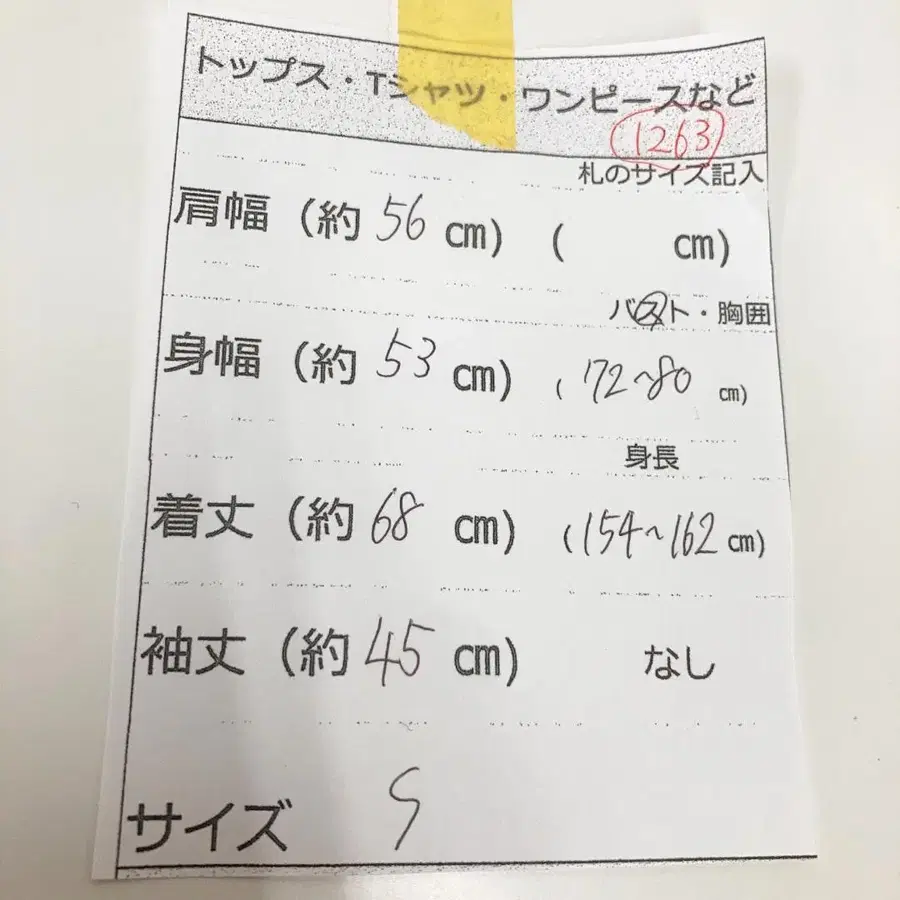 トップス・Tシャツ・ワンピースなど
1263
札のサイズ記入
肩幅（約 56 cm）（ cm）
バスト・胸囲
身幅（約 53 cm）（72~80 cm）
身長
着丈（約 68 cm）（154~162 cm）
袖丈（約 45 cm） なし
サイズ S